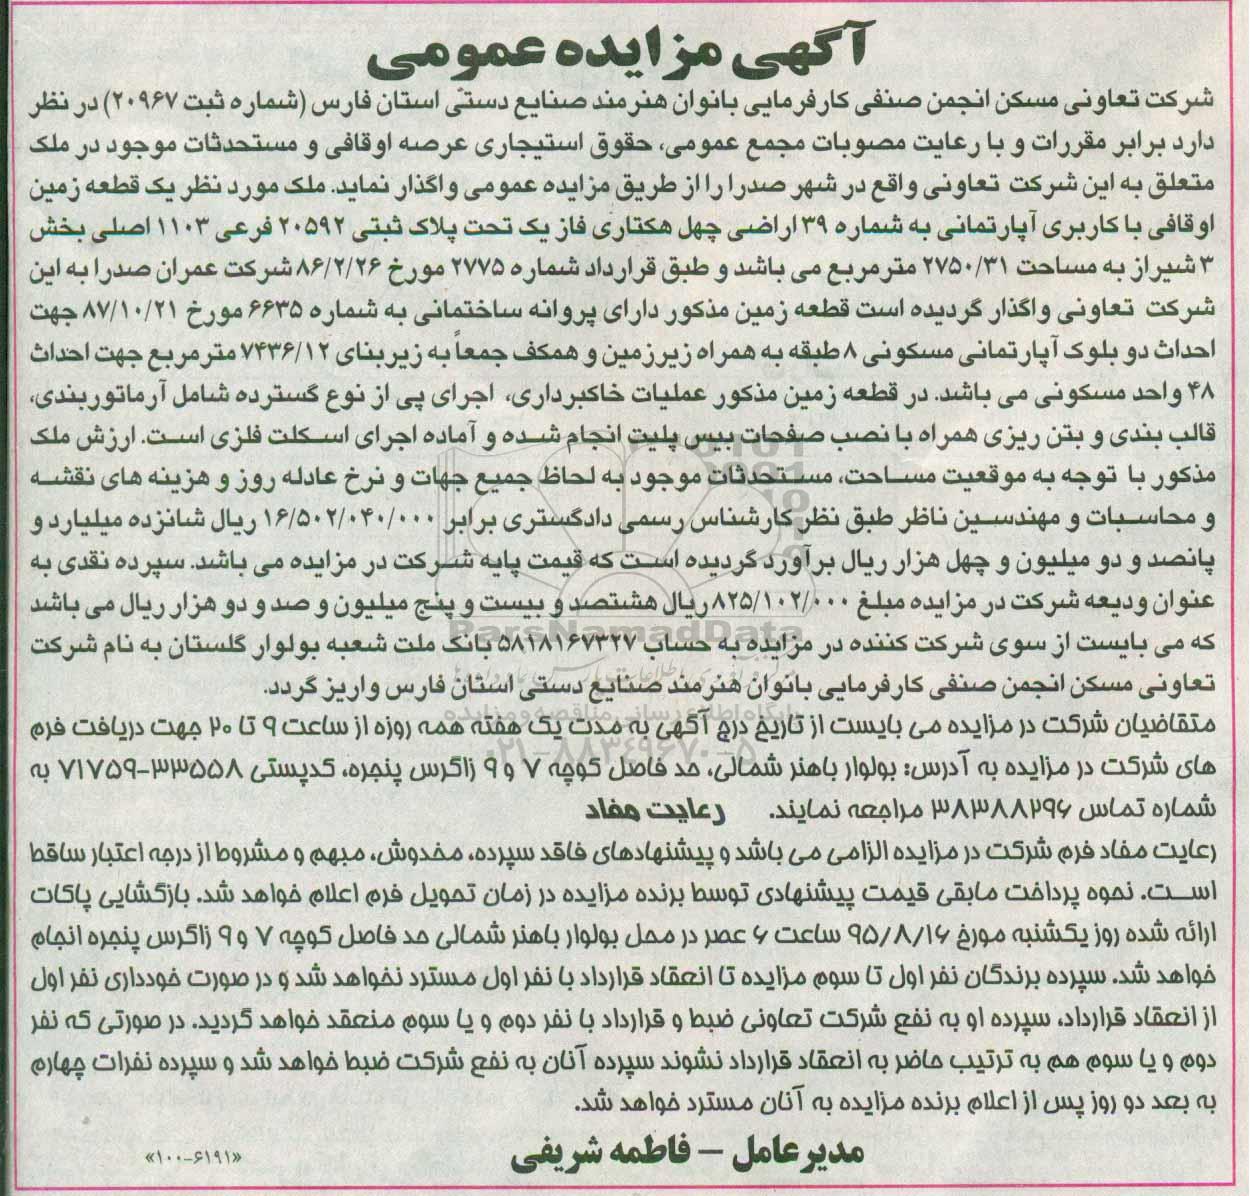 آگهی مزایده عمومی
شرکت تعاونی مسکن انجمن صنفی کارفرمایی بانوان هنرمند صنایع دستّی استان فارس (شماره ثبت ۲۰۹۶۷) در نظر
دارد برابر مقررات و با رعایت مصوبات مجمع عمومی، حقوق استیجاری عرصه اوقافی و مستحدثات موجود در ملک
متعلق به این شرکت تعاونی واقع در شهر صدرا را از طریق مزایده عمومی واگذار نماید. ملک مورد نظر یک قطعه زمین
اوقافی با کاربری آپارتمانی به شماره ۳۹ اراضی چهل هکتاری فاز یک تحت پلاک ثبتی ۲۰۵۹۲ فرعی ۱۱۰۳ اصلی بخش
۳ شیراز به مساحت ۲۷۵۰/۳۱ مترمربع می باشد و طبق قرارداد شماره ۲۷۷۵ مورخ ۸۶/۲/۲۶ شرکت عمران صدرا به این
شرکت تعاونی واگذار گردیده است قطعه زمین مذکور دارای پروانه ساختمانی به شماره ۶۶۳۵ مورخ ۸۷/۱۰/۲۱ جهت
احداث دو بلوک آپارتمانی مسکونی ۸ طبقه به همراه زیرزمین و همکف جمعاً به زیربنای ۷۴۳۶/۱۲ مترمربع جهت احداث
۴۸ واحد مسکونی می باشد. در قطعه زمین مذکور عملیات خاکبرداری، اجرای پی از نوع گسترده شامل آرماتوربندی،
قالب بندی و بتن ریزی همراه با نصب صفحات بیس پلیت انجام شده و آماده اجرای اسکلت فلزی است. ارزش ملک
مذکور با توجه به موقعیت مساحت، مستحدثات موجود به لحاظ جمیع جهات و نرخ عادله روز و هزینه های نقشه
و محاسبات و مهندسین ناظر طبق نظر کارشناس رسمی دادگستری برابر ۱۶/۵۰۲/۰۴۰/۰۰۰ ریال شانزده میلیارد و
پانصد و دو میلیون و چهل هزار ریال برآورد گردیده است که قیمت پایه شرکت در مزایده می باشد. سپرده نقدی به
عنوان ودیعه شرکت در مزایده مبلغ ۸۲۵/۱۰۲/۰۰۰ ریال هشتصد و بیست و پنج میلیون و صد و دو هزار ریال می باشد
که می بایست از سوی شرکت کننده در مزایده به حساب ۵۸۱۸۱۶۷۳۲۷ بانک ملت شعبه بولوار گلستان به نام شرکت
تعاونی مسکن انجمن صنفی کارفرمایی بانوان هنرمند صنایع دستی استان فارس واریز گردد.
متقاضیان شرکت در مزایده می بایست از تاریخ درج آگهی به مدت یک هفته همه روزه از ساعت ۹ تا ۲۰ جهت دریافت فرم
های شرکت در مزایده به آدرس: بولوار باهنر شمالی، حد فاصل کوچه ۷ و ۹ زاگرس پنجره، کدپستی ۳۳۵۵۸-۷۱۷۵۹ به
شماره تماس ۳۸۳۸۸۲۹۶ مراجعه نمایند. رعایت مفاد
رعایت مفاد فرم شرکت در مزایده الزامی می باشد و پیشنهادهای فاقد سپرده، مخدوش، مبهم و مشروط از درجه اعتبار ساقط
است. نحوه پرداخت مابقی قیمت پیشنهادی توسط برنده مزایده در زمان تحویل فرم اعلام خواهد شد. بازگشایی پاکات
ارائه شده روز یکشنبه مورخ ۹۵/۸/۱۶ ساعت ۶ عصر در محل بولوار باهنر شمالی حد فاصل کوچه ۷ و ۹ زاگرس پنجره انجام
خواهد شد. سپرده برندگان نفر اول تا سوم مزایده تا انعقاد قرارداد با نفر اول مسترد نخواهد شد و در صورت خودداری نفر اول
از انعقاد قرارداد، سپرده او به نفع شرکت تعاونی ضبط و قرارداد با نفر دوم و یا سوم منعقد خواهد گردید. در صورتی که نفر
دوم و یا سوم هم به ترتیب حاضر به انعقاد قرارداد نشوند سپرده آنان به نفع شرکت ضبط خواهد شد و سپرده نفرات چهارم
به بعد دو روز پس از اعلام برنده مزایده به آنان مسترد خواهد شد.
مدیرعامل – فاطمه شریفی
«۱۰۰-۶۱۹۱»
ParsNamadData
پایگاه اطلاع رسانی مناقصه و مزایده
۰۲۱-۸۸۳۴۹۶۷۰-۵